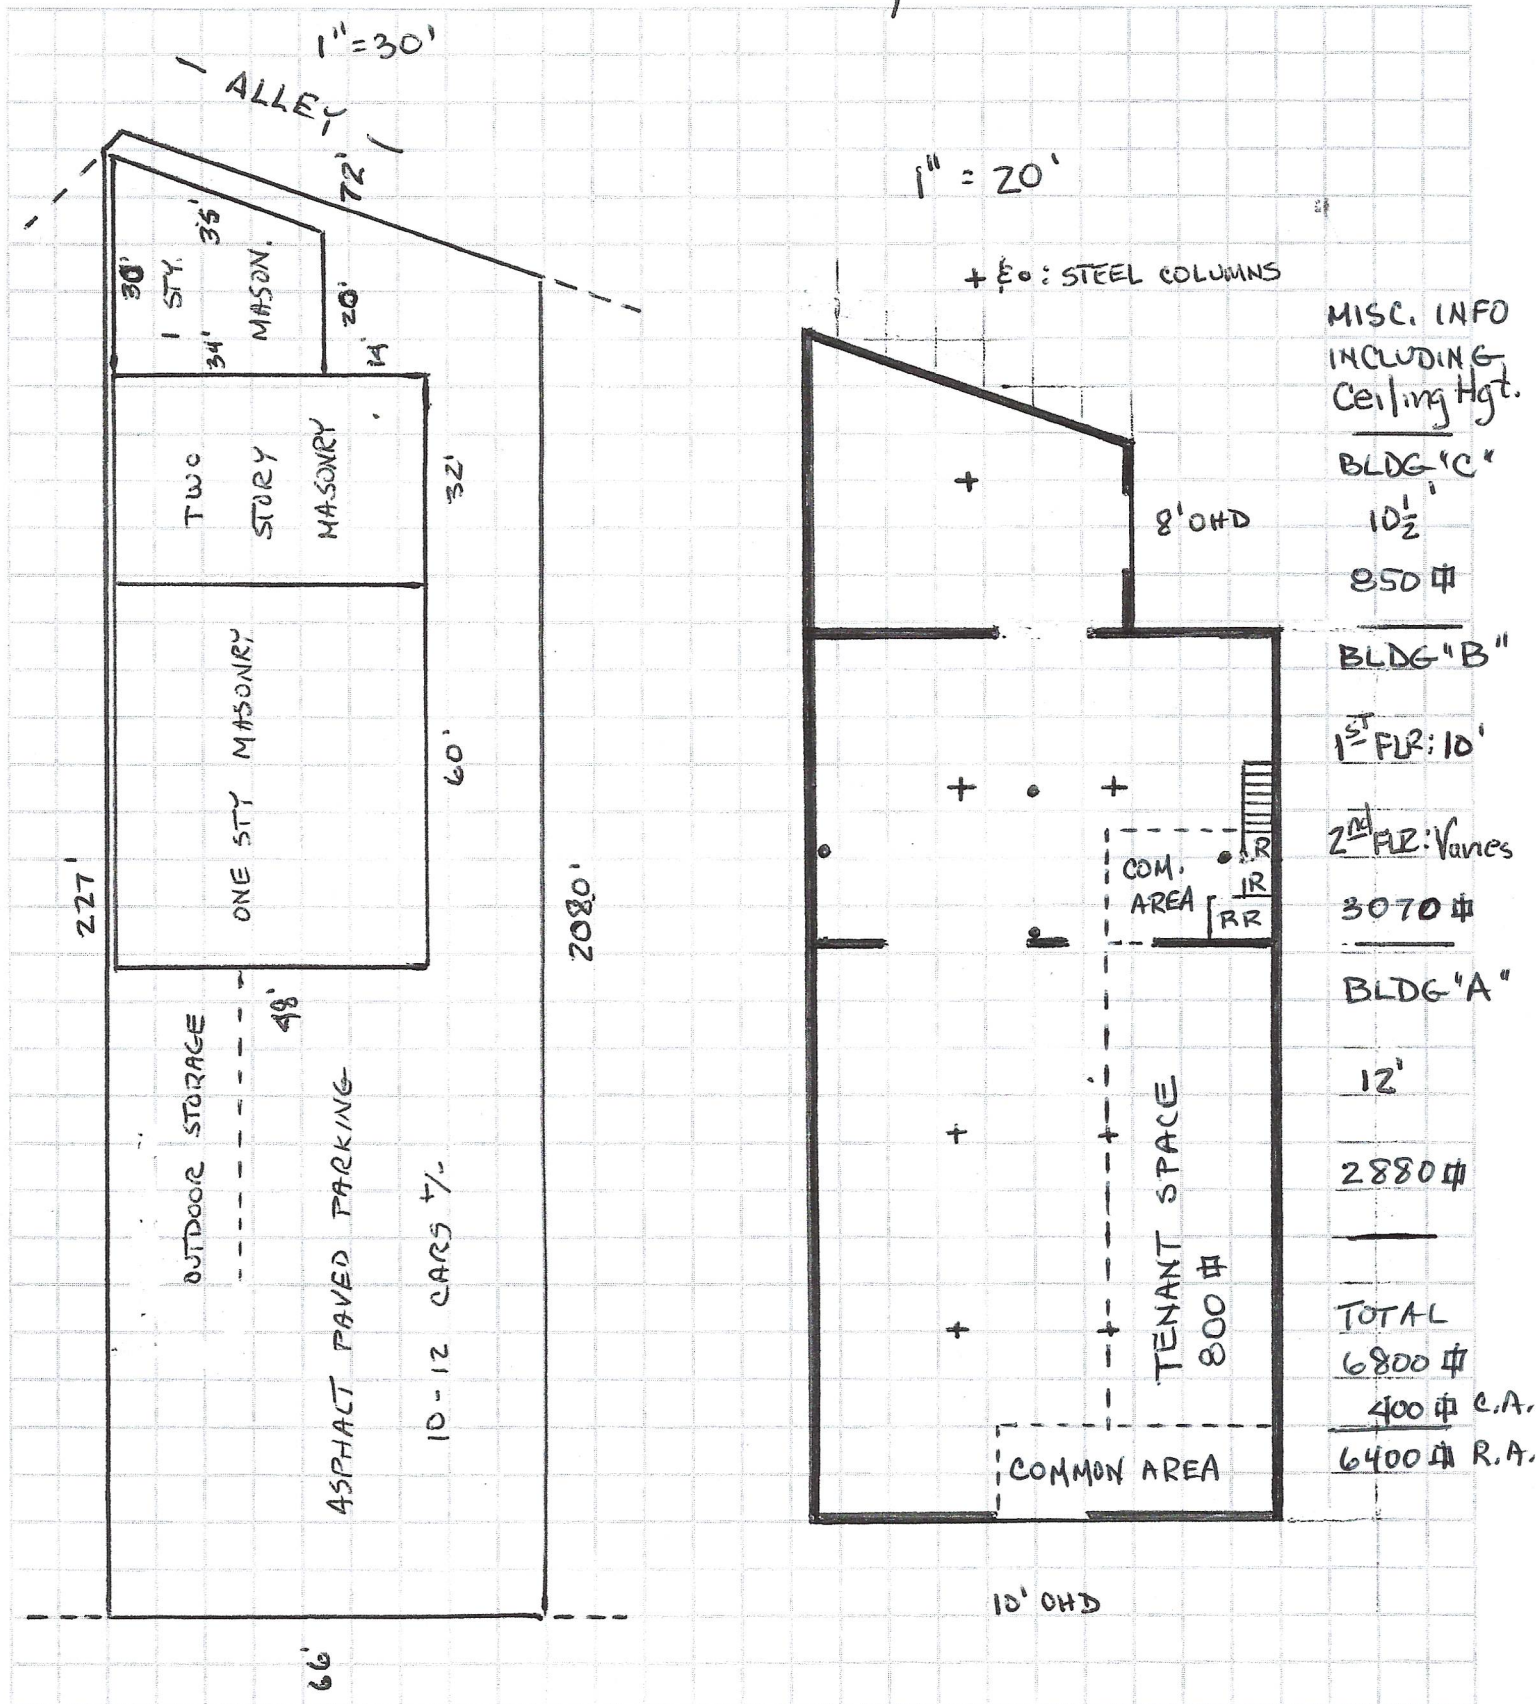 1"=30'
ALLEY
72'
35'
30'
1 STY.
MASON.
34'
20'
14'
TWO
STORY
MASONRY
32'
ONE STY MASONRY
60'
227'
2080'
48'
OUTDOOR STORAGE
ASPHALT PAVED PARKING
10-12 CARS +/-
66'
1" = 20'
+ & • : STEEL COLUMNS
8' OHD
COM.
AREA
R
R
RR
TENANT SPACE
800 ⌗
COMMON AREA
10' OHD
MISC. INFO
INCLUDING
Ceiling Hgt.
BLDG "C"
10½'
850 ⌗
BLDG "B"
1ST FLR: 10'
2nd FLR: Varies
3070 ⌗
BLDG "A"
12'
2880 ⌗
TOTAL
6800 ⌗
400 ⌗ C.A.
6400 ⌗ R.A.